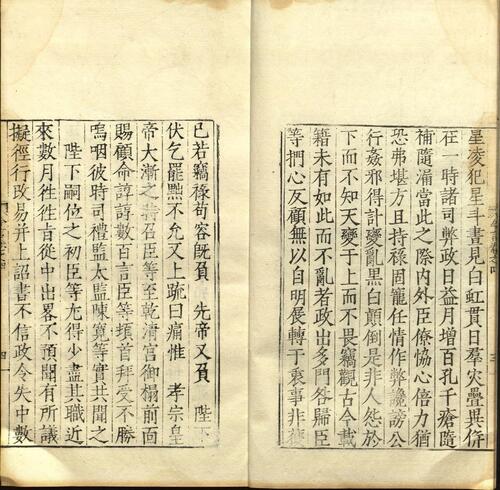 星凌犯星斗晝見白虹貫日羣灾疊異併
在一時諸司弊政日益月增百孔千瘡隨
補隨漏當此之際內外臣僚恊心倍力猶
恐弗堪方且持祿固寵任情作弊讒謗公
行姦邪得計變亂黑白顛倒是非人怨於
下而不知天變于上而不畏竊觀古今載
籍未有如此而不亂者政出多門咎歸臣
等捫心反顧無以自明展轉于衷事非獲
已若竊祿苟容旣負 先帝又負 陛下
伏乞罷黜不允又上疏曰痛惟 孝宗皇
帝大漸之時召臣等至乾清宮御榻前面
賜顧命諄諄數百言臣等頓首拜受不勝
嗚咽彼時司禮監太監陳寬等實共聞之
陛下嗣位之初臣等尢得少盡其職近
來數月徃徃旨從中出畧不預聞有所議
擬徑行改易并上詔書不信政令失中數
四